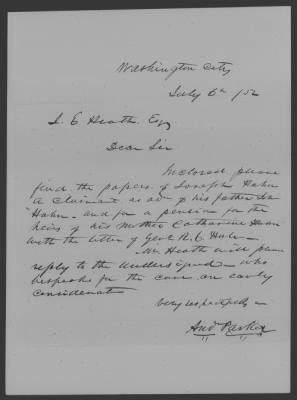 Washington City
July 6th /52
J. E. Heath Esq
Dear Sir
Inclosed please
find the papers of Joseph Hahn
a Claimant as adr of his father
"Hahn" and for a pension for the
heirs of his Mother Catharine Hahn
with the letter of Geo. R. C.
Mr. Heath will please
reply to the undersigned who
bespeaks for the case an early
consideration
Very respectfully
And Parker